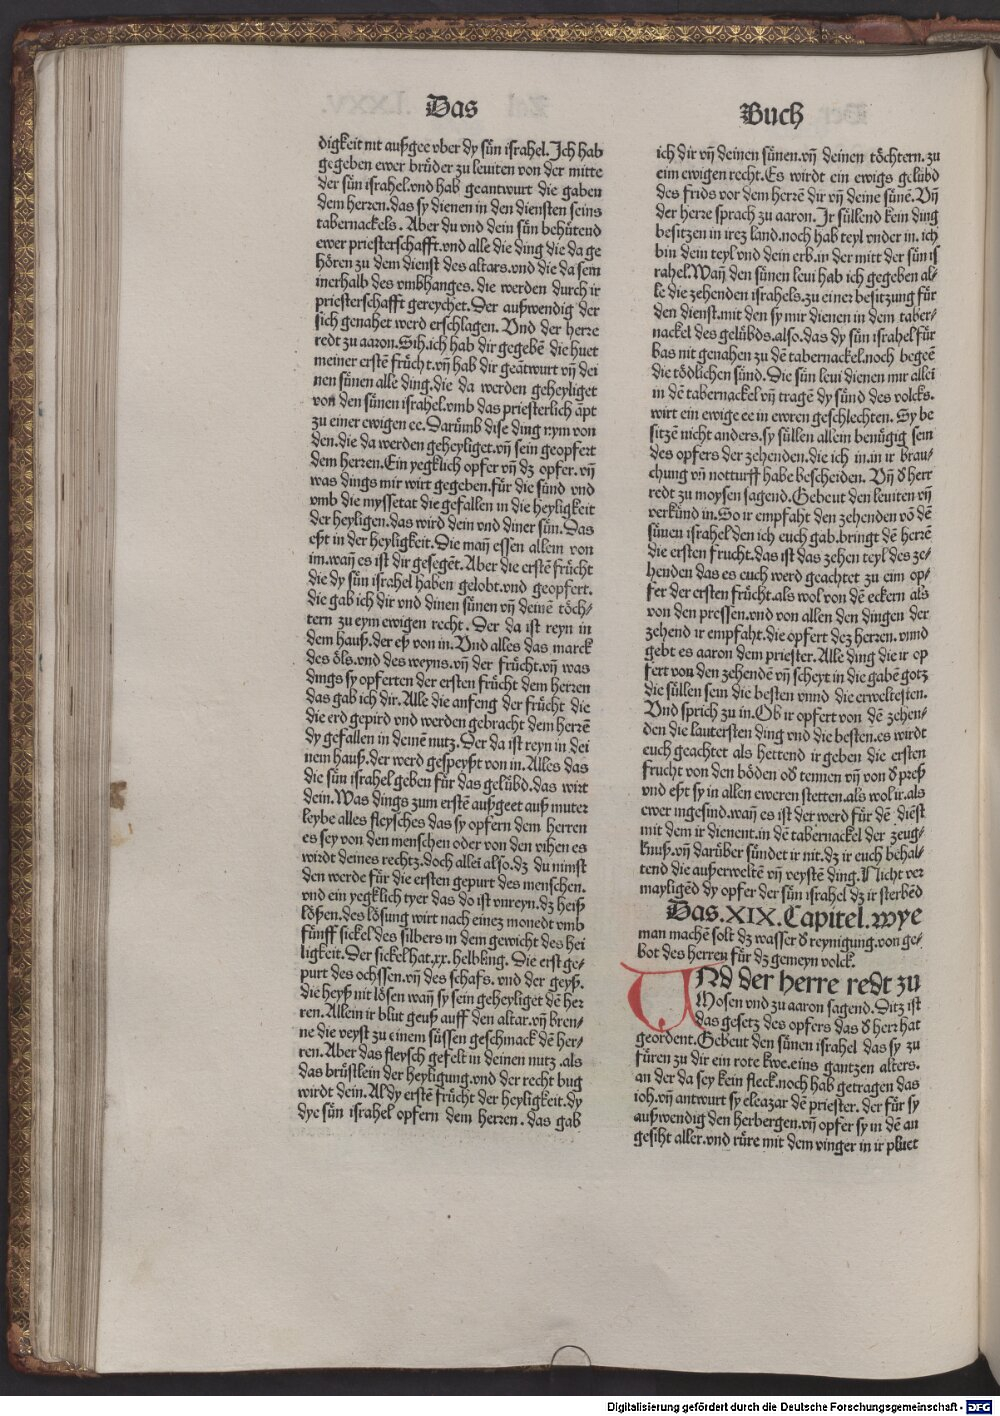 Das
Buch
digkeit nit außgee vber dy sün israhel. Jch hab
gegeben ewer brüder zu leuiten von der mitte
der sün israhel. vnd hab geantwurt die gaben
dem herren. das sy dienen in den diensten seins
tabernackels. Aber du vnd dein sün behütend
ewer priesterschafft. vnd alle die ding die da ge
hören zu dem dienst des altars. vnd die da sein
inerhalb des vmbhanges. die werden durch ir
priesterschafft gereychet. Der außwendig der
sich genahet werd erschlagen. Vnd der herre
redt zu aaron. Sih. ich hab dir gegebē die huet
meiner erstē frücht. vñ hab dir geātwurt vñ dei
nen sünen alle ding. die da werden geheyliget
von den sünen israhel. vmb das priesterlich āpt
zu einer ewigen ee. Darūmb dise ding nym von
den. die da werden geheyliget. vñ sein geopfert
dem herren. Ein yegklich opfer vñ dz opfer. vñ
was dings mir wirt gegeben. für die sünd vnd
vmb die myssetat die gefallen in die heyligkeit
der heyligen. das wird dein vnd diner sün. Das
eßt in der heyligkeit. Die mañ essen allein von
im. wañ es ist dir gesegēt. Aber die erstē frücht
die dy sün israhel haben gelobt. vnd geopfert.
die gab ich dir vnd dinen sünen vñ deinē töch-
tern zu eym ewigen recht. Der da ist reyn in
dem hauß. der eß von in. Vnd alles das marck
des öls. vnd des weyns. vñ der frücht. vñ was
dings sy opferten der ersten frücht dem herren
das gab ich dir. Alle die anfeng der frücht die
die erd gepird vnd werden gebracht dem herrē
dy gefallen in deinē nutz. Der da ist reyn in dei
nem hauß. der werd gespeyßt von in. Alles das
die sün israhel geben für das gelübd. das wirt
dein. Was dings zum erstē außgeet auß muter
leybe alles fleysches das sy opfern dem herren
es sey von den menschen oder von den vihen es
wirdt deines rechtz. doch allei also. dz du nimst
den werde für die ersten gepurt des menschen.
vnd ein yegklich tyer das do ist vnreyn. dz heiß
lößen. des lösung wirt nach einez monedt vmb
fünff sickel des silbers in dem gewicht des hei
ligkeit. Der sickel hat. xx. helbling. Die erst ge-
purt des ochssen. vñ des schafs. vnd der geyß.
die heyß nit lösen wañ sy sein geheyliget dē her
ren. Allein ir blut geuß auff den altar. vñ bren-
ne die veyst zu einem süssen geschmack dē her-
ren. Aber das fleysch gefelt in deinen nutz. als
das brüstlein der heyligung. vnd der recht bug
wirdt dein. Al dy erstē frücht der heyligkeit. dy
dye sün israhel opfern dem herren. das gab
ich dir vñ deinen sünen. vñ deinen töchtern. zu
eim ewigen recht. Es wirdt ein ewigs gelübd
des frids vor dem herrē dir vñ deine sünē. Vñ
der herre sprach zu aaron. Jr süllend kein ding
besitzen in irez land. noch hab teyl vnder in. ich
bin dein teyl vnd dein erb. in der mitt der sün is
rahel. Wañ den sünen leui hab ich gegeben al-
le die zehenden israhels. zu einer besitzung für
den dienst. mit den sy mir dienen in dem taber-
nackel des gelübds. also. das dy sün israhel für
bas nit genahen zu dē tabernackel. noch begeē
die tödlichen sünd. Die sün leui dienen mir allei
in dē tabernackel vñ tragē dy sünd des volcks.
wirt ein ewige ee in ewren geschlechten. Sy be
sitzē nicht anders. sy süllen allein benügig sein
des opfers der zehenden. die ich in. in ir brau-
chung vñ notturff habe bescheiden. Vñ d herr
redt zu moysen sagend. Gebeut den leuiten vñ
verkünd in. So ir empfaht den zehenden vō dē
sünen israhel den ich euch gab. bringt dē herrē
die ersten frucht. das ist das zehen teyl des ze-
henden das es euch werd geachtet zu eim op-
fer der ersten frücht. als wol von dē eckern als
von den pressen. vnd von allen den dingen der
zehend ir empfaht. die opfert dez herren. vnnd
gebt es aaron dem priester. Alle ding die ir op
fert von den zehendē vñ scheyt in die gabē gotz
die süllen sein die besten vnnd die erweltesten.
Vnd sprich zu in. Ob ir opfert von dē zehen-
den die lautersten ding vnd die besten. es wirdt
euch geachtet als hettend ir geben die ersten
frucht von den böden od tennen vñ von d preß
vnd eßt sy in allen eweren stetten. als wol ir. als
ewer ingesind. wañ es ist der werd für dē dienst
mit dem ir dienent. in dē tabernackel der zeug-
knuß. vñ darüber sündet ir nit. dz ir euch behal-
tend die außerweltē vñ veystē ding. Nicht ver
mayligēd dy opfer der sün israhel dz ir sterbēd
Das. XIX. Capitel. wye
man machē solt dz wasser d reynigung. von ge-
bot des herren für dz gemeyn volck.
VNd der herre redt zu
Mosen vnd zu aaron sagend. Ditz ist
das gesetz des opfers das d herr hat
geordent. Gebeut den sünen israhel das sy zu
füren zu dir ein rote kwe. eins gantzen alters.
an der da sey kein fleck. noch hab getragen das
ioh. vñ antwurt sy eleazar dē priester. der für sy
außwendig den herbergen. vñ opfer sy in dē an
gesiht aller. vnd rüre mit dem vinger in ir pluet
Digitalisierung gefördert durch die Deutsche Forschungsgemeinschaft - DFG